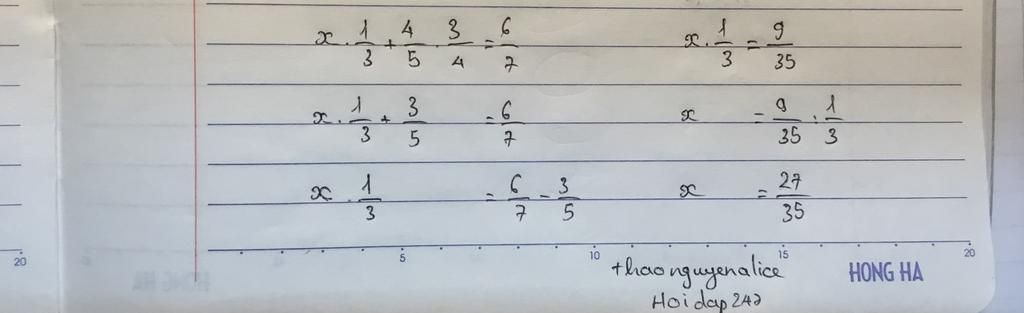 x · 1/3 + 4/5 · 3/4 = 6/7
x · 1/3 + 3/5 = 6/7
x · 1/3 = 6/7 - 3/5
x · 1/3 = 9/35
x = 9/35 : 1/3
x = 27/35
20 5 10 15 20
thaonguyenalice
Hoidap247
HONG HA